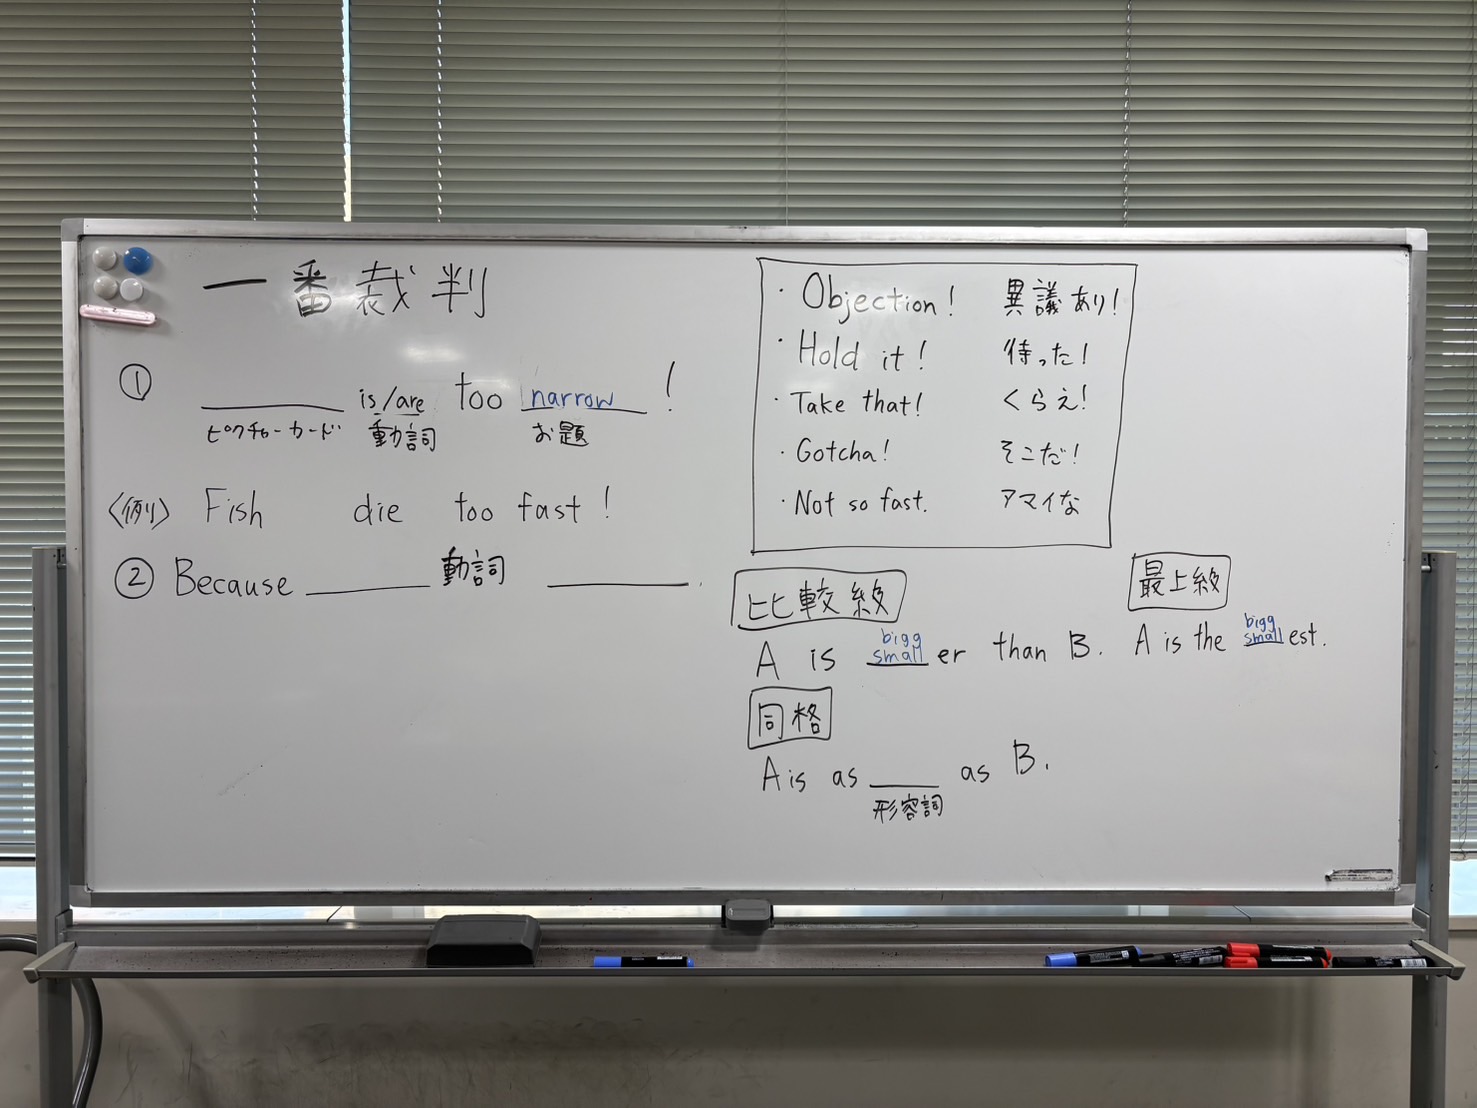 一番裁判
① ______ is/are too narrow !
ピクチャーカード 動詞 お題
〈例〉 Fish die too fast !
② Because ______ 動詞 ______.
・Objection! 異議あり!
・Hold it! 待った!
・Take that! くらえ!
・Gotcha! そこだ!
・Not so fast. アマイな
比較級
A is bigg small er than B.
最上級
A is the bigg small est.
同格
A is as ____ as B.
形容詞